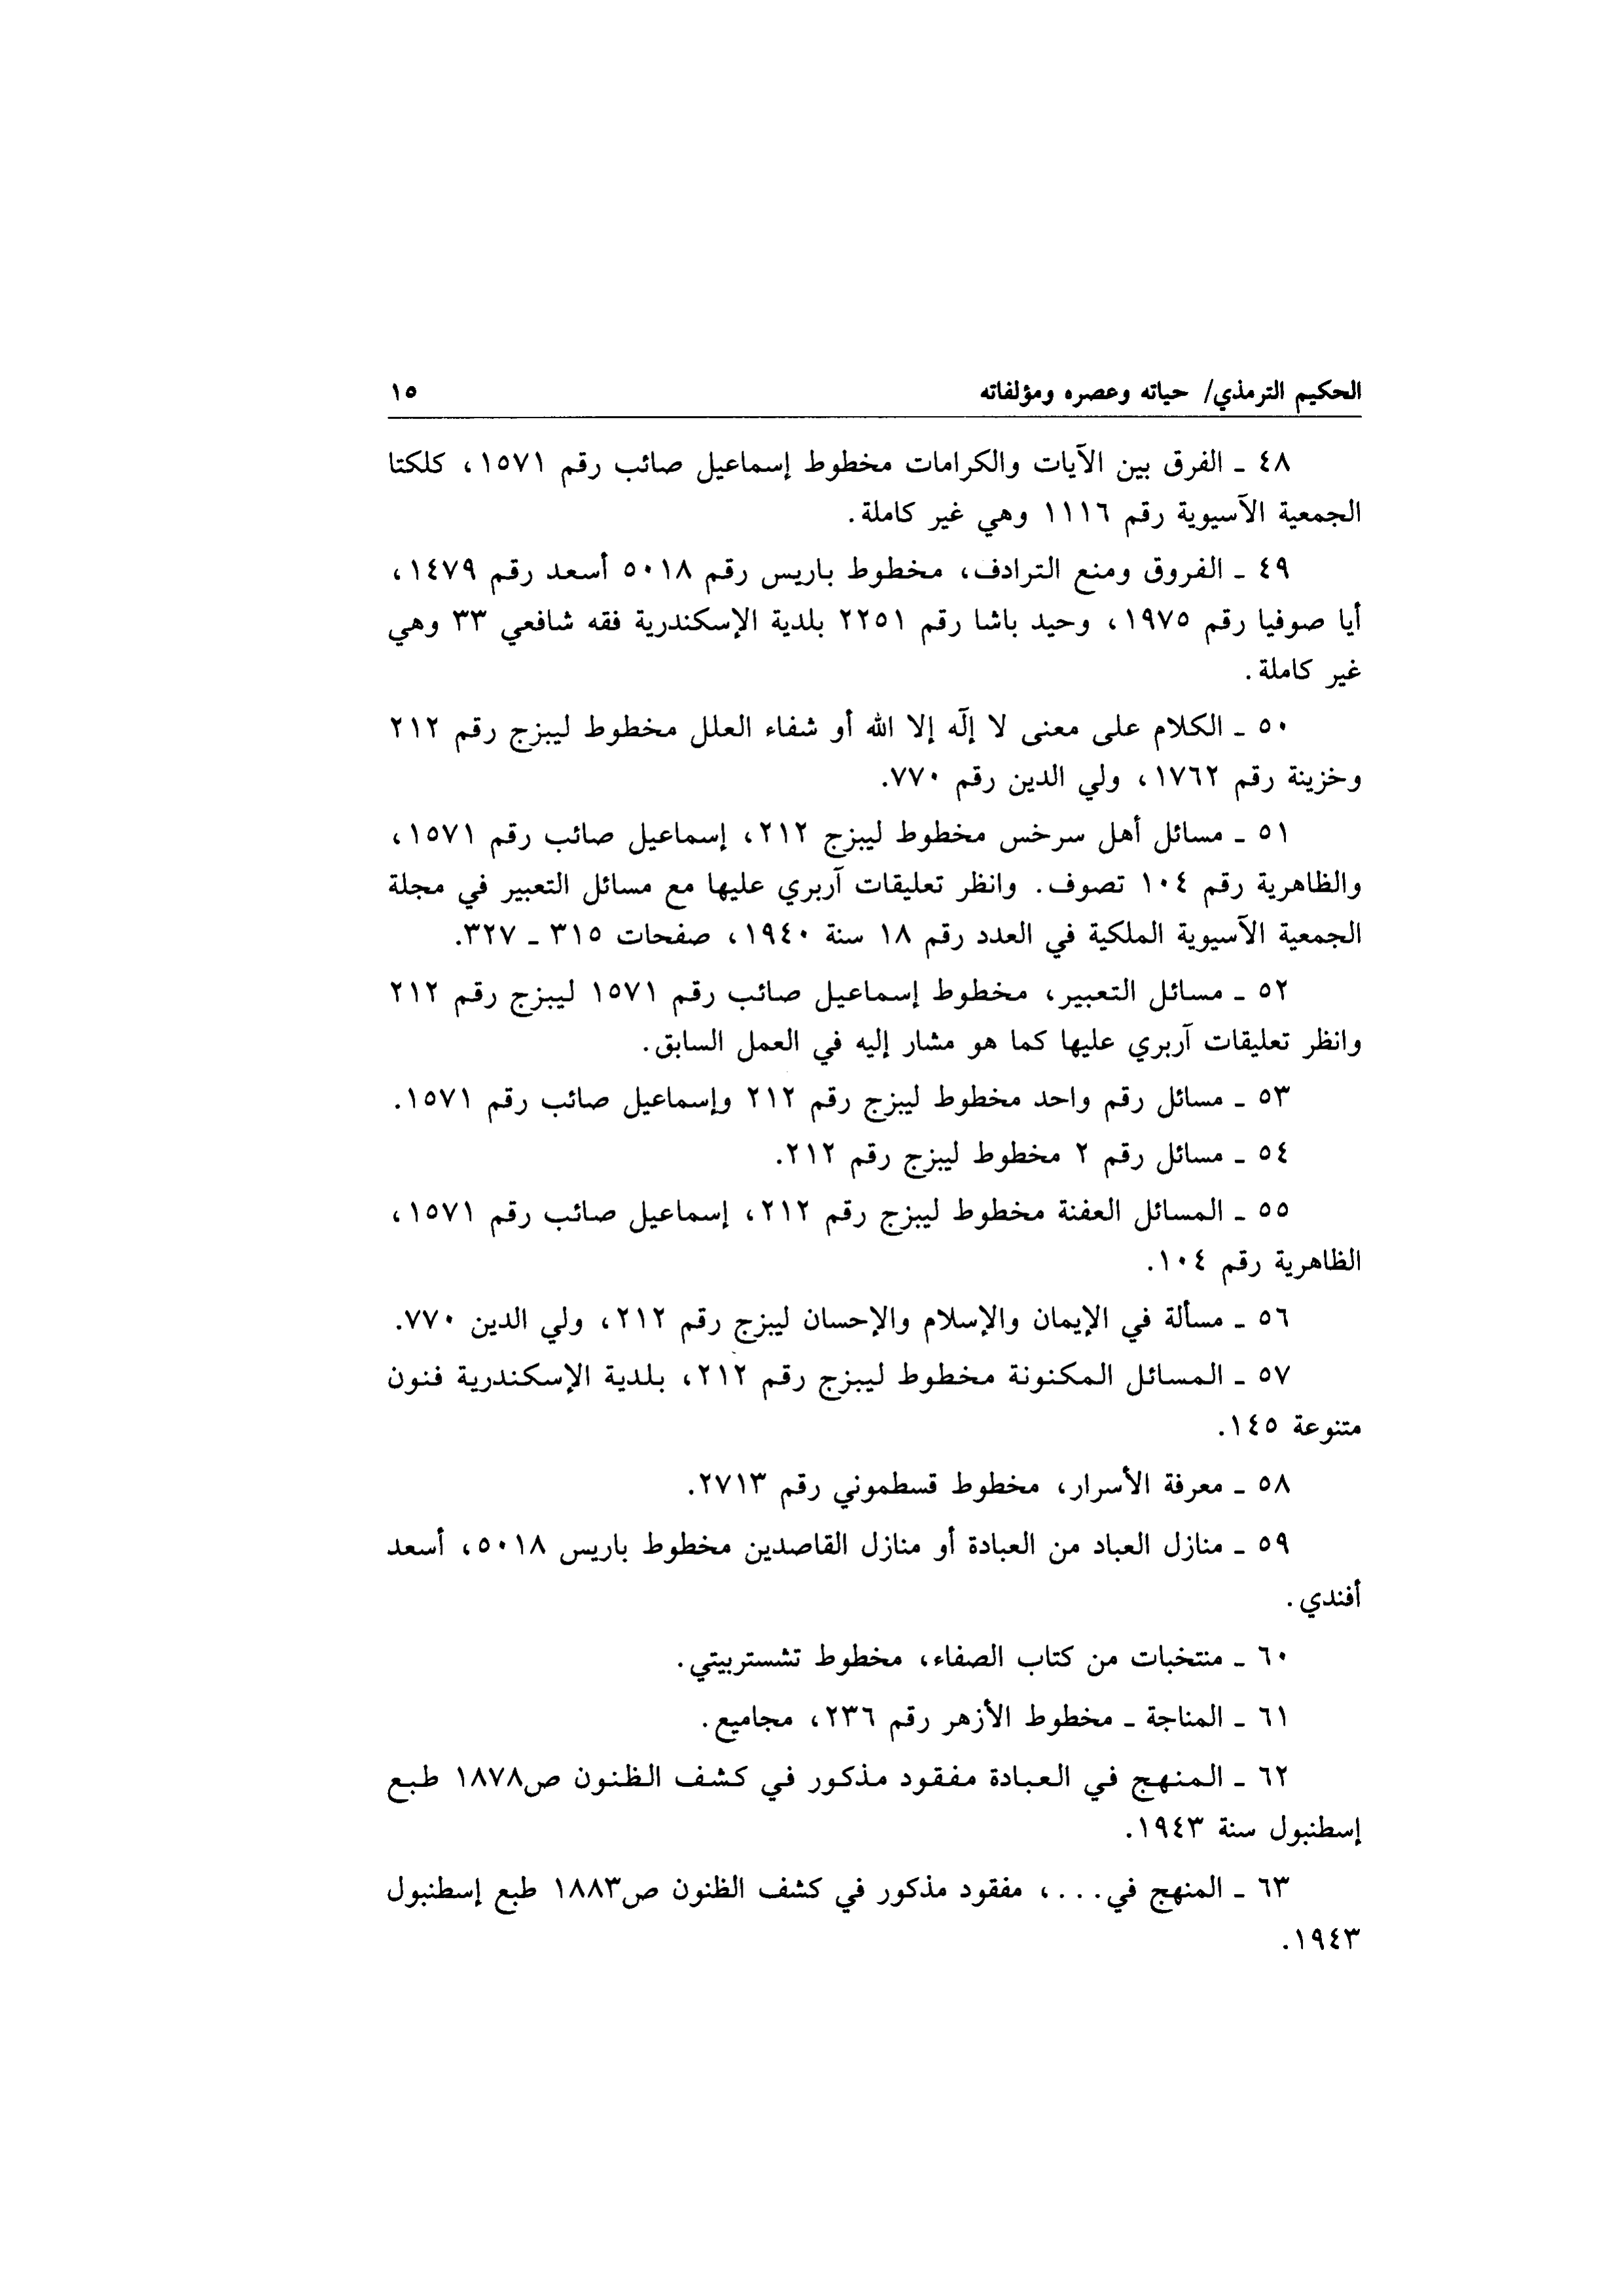 الحكيم الترمذي/ حياته وعصره ومؤلفاته ١٥
٤٨ ـ الفرق بين الآيات والكرامات مخطوط إسماعيل صائب رقم ١٥٧١، كلكتا
الجمعية الآسيوية رقم ١١١٦ وهي غير كاملة.
٤٩ ـ الفروق ومنع الترادف، مخطوط باريس رقم ٥٠١٨ أسعد رقم ١٤٧٩،
أيا صوفيا رقم ١٩٧٥، وحيد باشا رقم ٢٢٥١ بلدية الإسكندرية فقه شافعي ٣٣ وهي
غير كاملة.
٥٠ ـ الكلام على معنى لا إلٓه إلا الله أو شفاء العلل مخطوط ليبزج رقم ٢١٢
وخزينة رقم ١٧٦٢، ولي الدين رقم ٧٧٠.
٥١ ـ مسائل أهل سرخس مخطوط ليبزج ٢١٢، إسماعيل صائب رقم ١٥٧١،
والظاهرية رقم ١٠٤ تصوف. وانظر تعليقات آربري عليها مع مسائل التعبير في مجلة
الجمعية الآسيوية الملكية في العدد رقم ١٨ سنة ١٩٤٠، صفحات ٣١٥ ـ ٣٢٧.
٥٢ ـ مسائل التعبير، مخطوط إسماعيل صائب رقم ١٥٧١ ليبزج رقم ٢١٢
وانظر تعليقات آربري عليها كما هو مشار إليه في العمل السابق.
٥٣ ـ مسائل رقم واحد مخطوط ليبزج رقم ٢١٢ وإسماعيل صائب رقم ١٥٧١.
٥٤ ـ مسائل رقم ٢ مخطوط ليبزج رقم ٢١٢.
٥٥ ـ المسائل العفنة مخطوط ليبزج رقم ٢١٢، إسماعيل صائب رقم ١٥٧١،
الظاهرية رقم ١٠٤.
٥٦ ـ مسألة في الإيمان والإسلام والإحسان ليبزج رقم ٢١٢، ولي الدين ٧٧٠.
٥٧ ـ المسائل المكنونة مخطوط ليبزج رقم ٢١٢، بلدية الإسكندرية فنون
متنوعة ١٤٥.
٥٨ ـ معرفة الأسرار، مخطوط قسطموني رقم ٢٧١٣.
٥٩ ـ منازل العباد من العبادة أو منازل القاصدين مخطوط باريس ٥٠١٨، أسعد
أفندي.
٦٠ ـ منتخبات من كتاب الصفاء، مخطوط تشستربيتي.
٦١ ـ المناجة ـ مخطوط الأزهر رقم ٢٣٦، مجاميع.
٦٢ ـ المنهج في العبادة مفقود مذكور في كشف الظنون ص١٨٧٨ طبع
إسطنبول سنة ١٩٤٣.
٦٣ ـ المنهج في...، مفقود مذكور في كشف الظنون ص١٨٨٣ طبع إسطنبول
١٩٤٣.